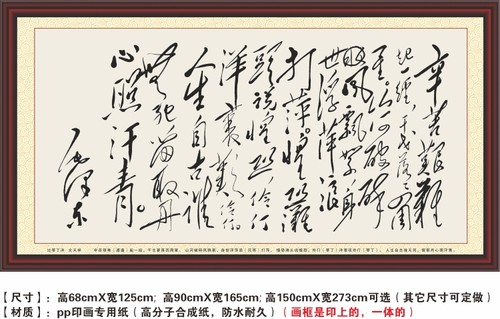 辛苦艱難
起一經干戈落落四周
星山河破碎
風飄絮身
世浮
打萍惶恐灘
頭說惶恐伶仃
洋裏歎伶仃
人生自古誰
無死留取丹
心照汗青
毛澤東
过零丁洋·文天祥
【尺寸】：高68cmX宽125cm; 高90cmX宽165cm; 高150cmX宽273cm可选（其它尺寸可定做）
【材质】：pp印画专用纸（高分子合成纸，防水耐久）（画框是印上的，一体的）